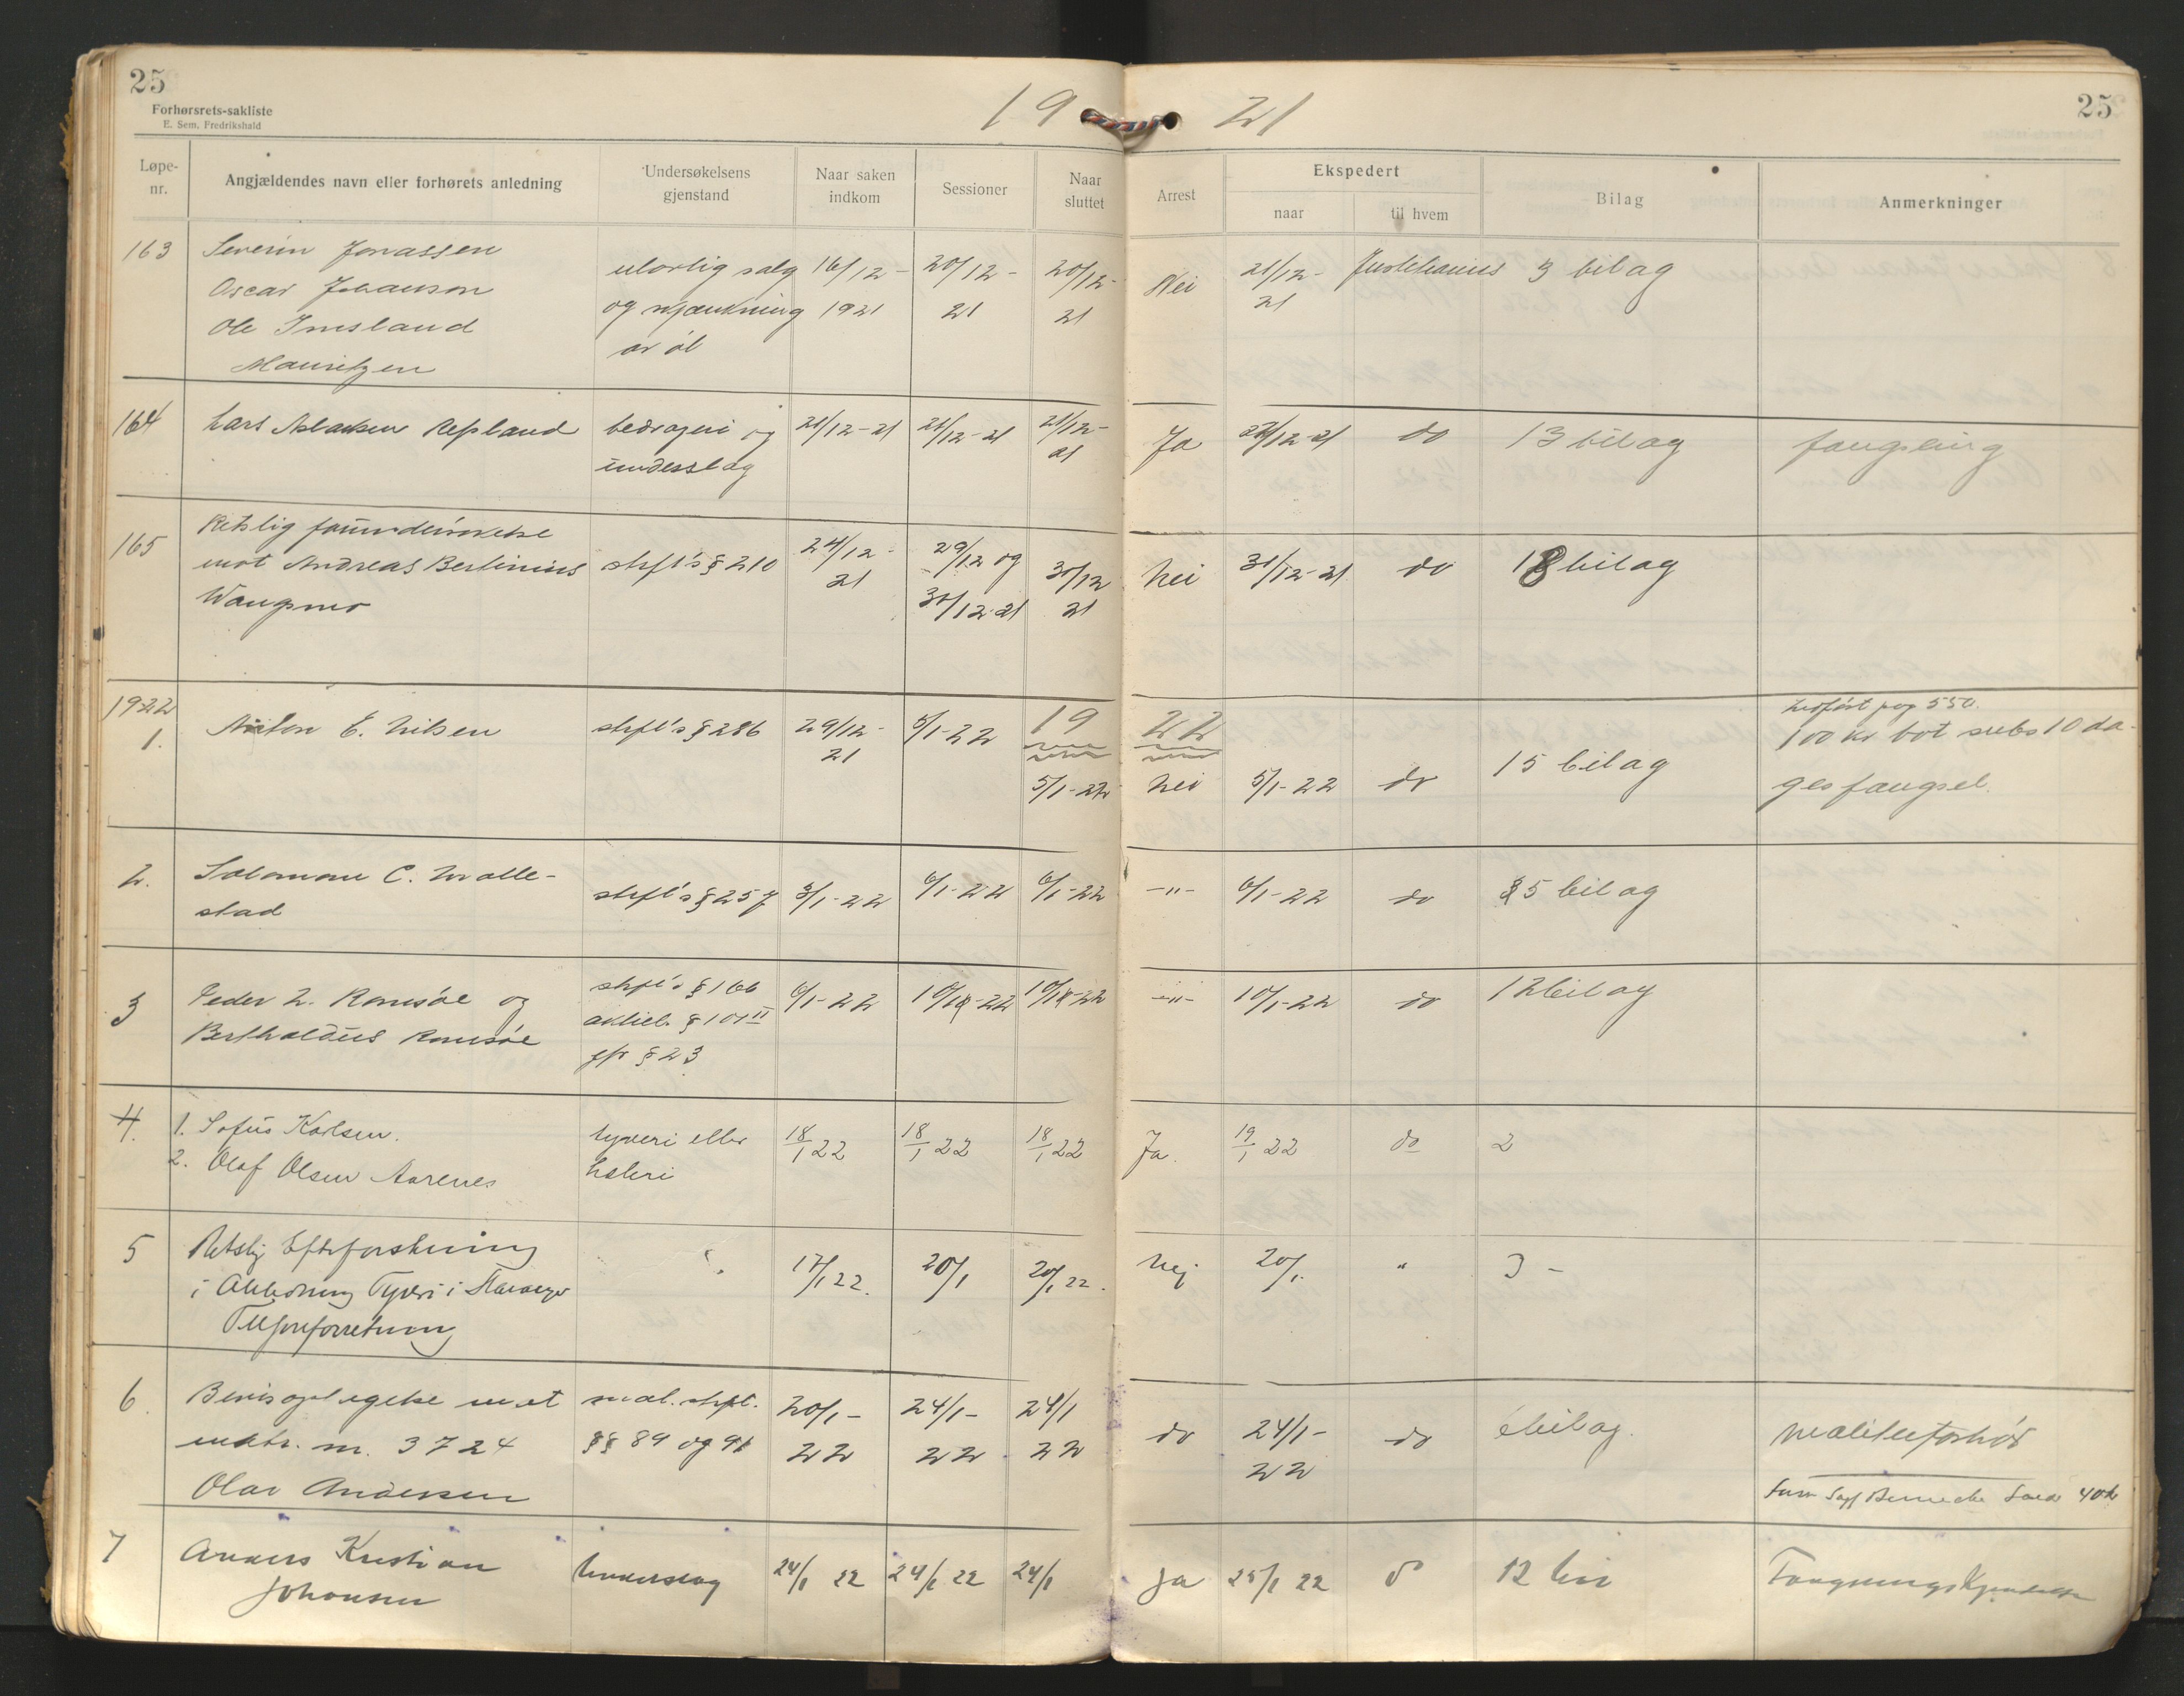 25
Forhørsrets-sakliste
E. Sem, Fredrikshald
19 21
25
Løpe-nr. Angjældendes navn eller forhørets anledning Undersøkelsens gjenstand Naar saken indkom Sessioner Naar sluttet Arrest Ekspedert naar til hvem Bilag Anmerkninger
163 Severin Jonassen
Oscar Johanson
Ole Imsland
Mauritzen
ulovlig salg
og skjænkning
av øl
16/12-
1921
20/12-
21
20/12-
21
Nei
21/12-
21
Justitiarius 3 bilag
164 Lars Aslaksen Repland
bedrageri og
underslag
21/12-21 21/12-21 21/12-
21
Ja 22/12-21 do 13 bilag fængsling
165 Retslig forundersøkelse
mot Andreas Bertinius
Wangsmo
strfl's § 210
24/12-
21
29/12 og
30/12-21
30/12
21
Nei 31/12-21 do 18 bilag
1922
1. Anton E. Nilsen
strfl's § 286
29/12-
21
5/1-22
19 22
5/1-22 Nei 5/1-22 do 15 bilag
100 kr bot subs 10 da-
ges fængsel.
2. Salamon C. Tralle-
stad
strfl's § 257 3/1-22 6/1-22 6/1-22 -"- 6/1-22 do 5 bilag
3 Peder L. Ramsøe og
Bertholdus Ramsøe
strfl's § 166
aktiel. § 101 II
jfr § 23
6/1-22 10/1-22 10/1-22 -"- 10/1-22 do 12 bilag
4. 1. Sofus Karlsen.
2. Olaf Olsen Aarenes
tyveri eller
heleri
18/1 22 18/1 22 18/1 22 Ja. 19/1 22 do 2
5 Retslig Efterforskning
i Anledning Tyveri i Stavanger
" 17/1 22. 20/1 20/1 22. Nej 20/1. " 3 -
6. Bevisoptagelse mot
matr. nr. 3724
Olav Andersen
mil. strfl.
§§ 89 og 91
20/1-
22
24/1-
22
24/1
22
do 24/1-
22
do 6 bilag.
40 kr
7 Anders Kristian
Johansen
Underslag 24/1 22 24/1 22 24/1 Ja 25/1 22 do 12 bil Fængslingskjendelse